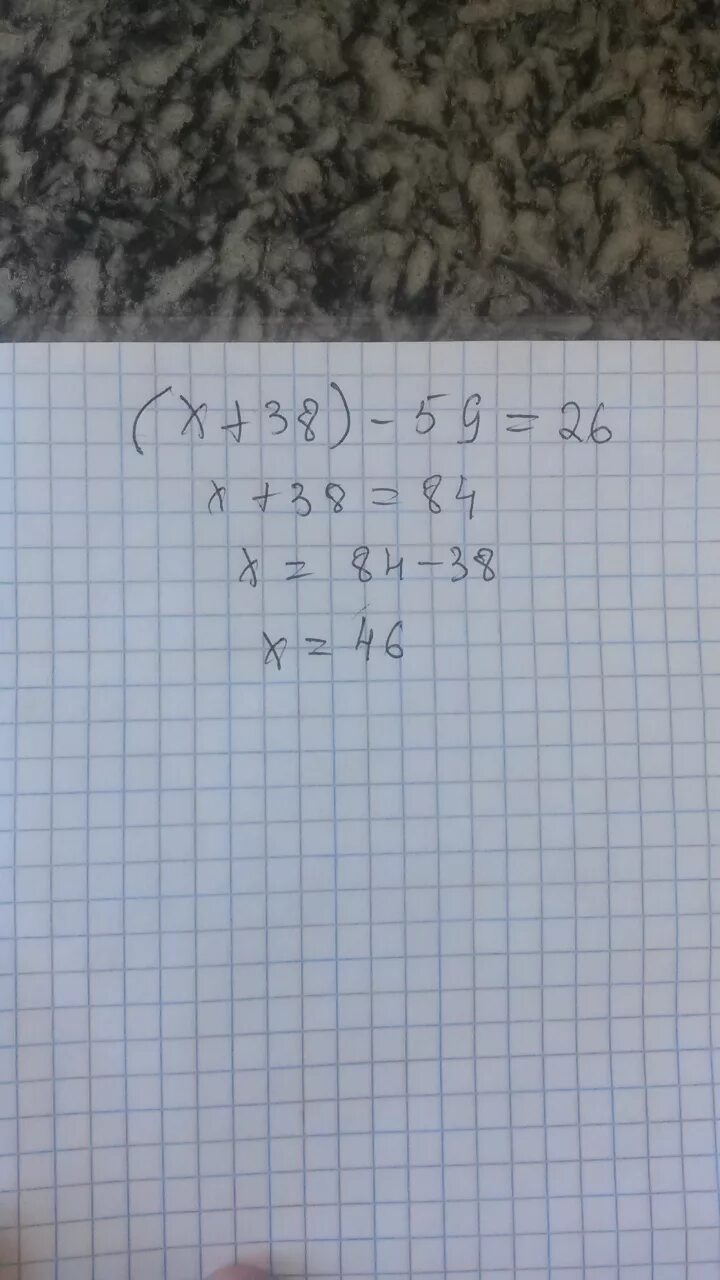 (x+38)-59=26
x+38=84
x=84-38
x=46